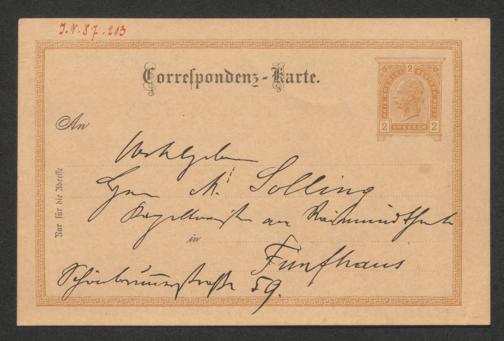 J.N. 87.213
Correspondenz-Karte.
2
2 KREUZER 2
An
Wohlgeboren
Herrn M. Solling
Kapellmeister am Raimundtheater
in
Fünfhaus
Schönbrunnerstraße 59.
Nur für die Adresse